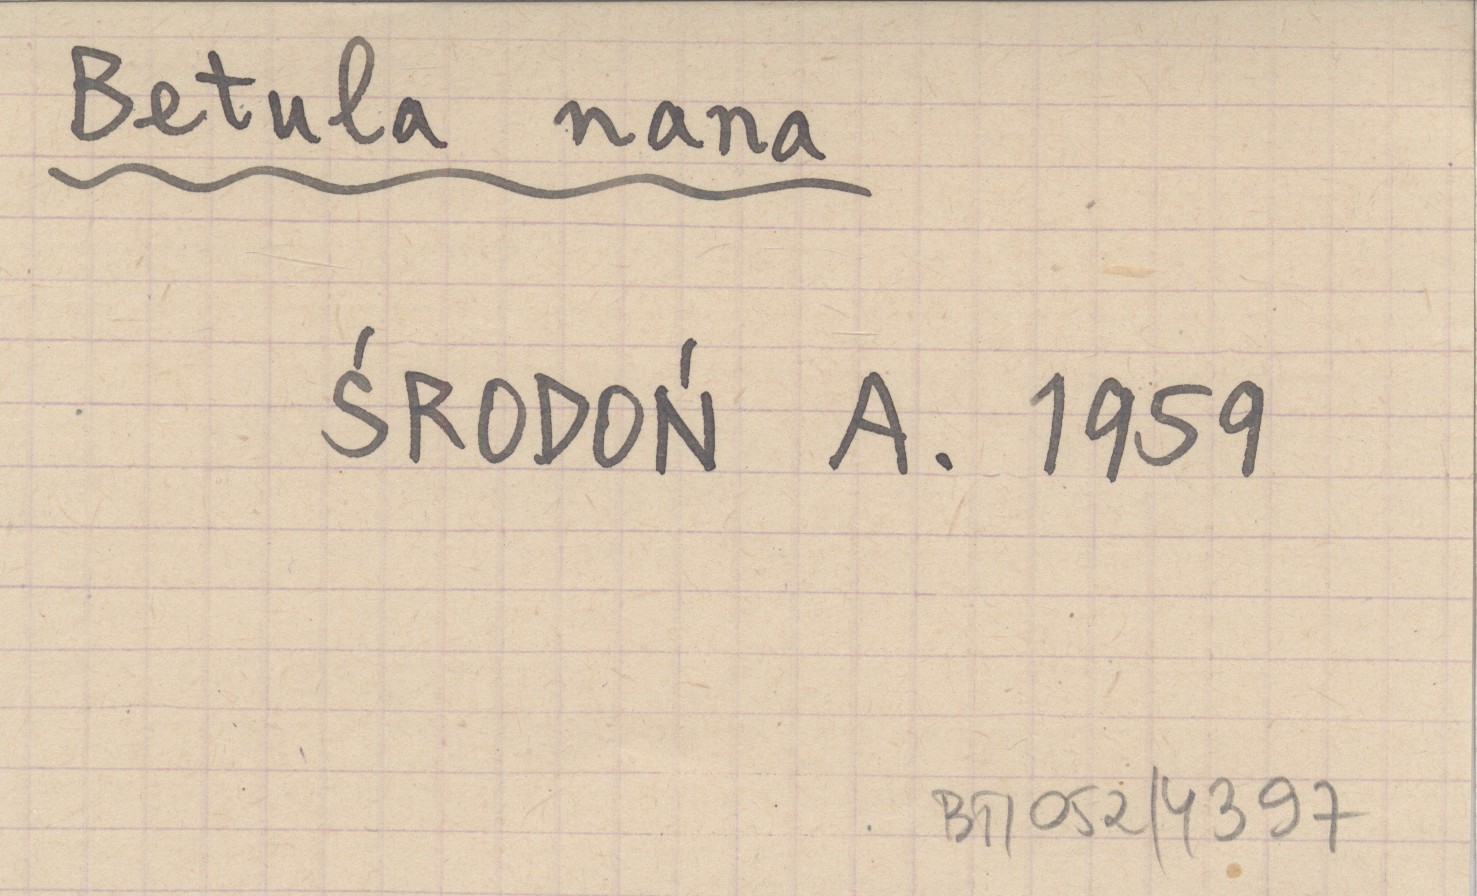 Betula nana
ŚRODOŃ A. 1959
BT/052/4397